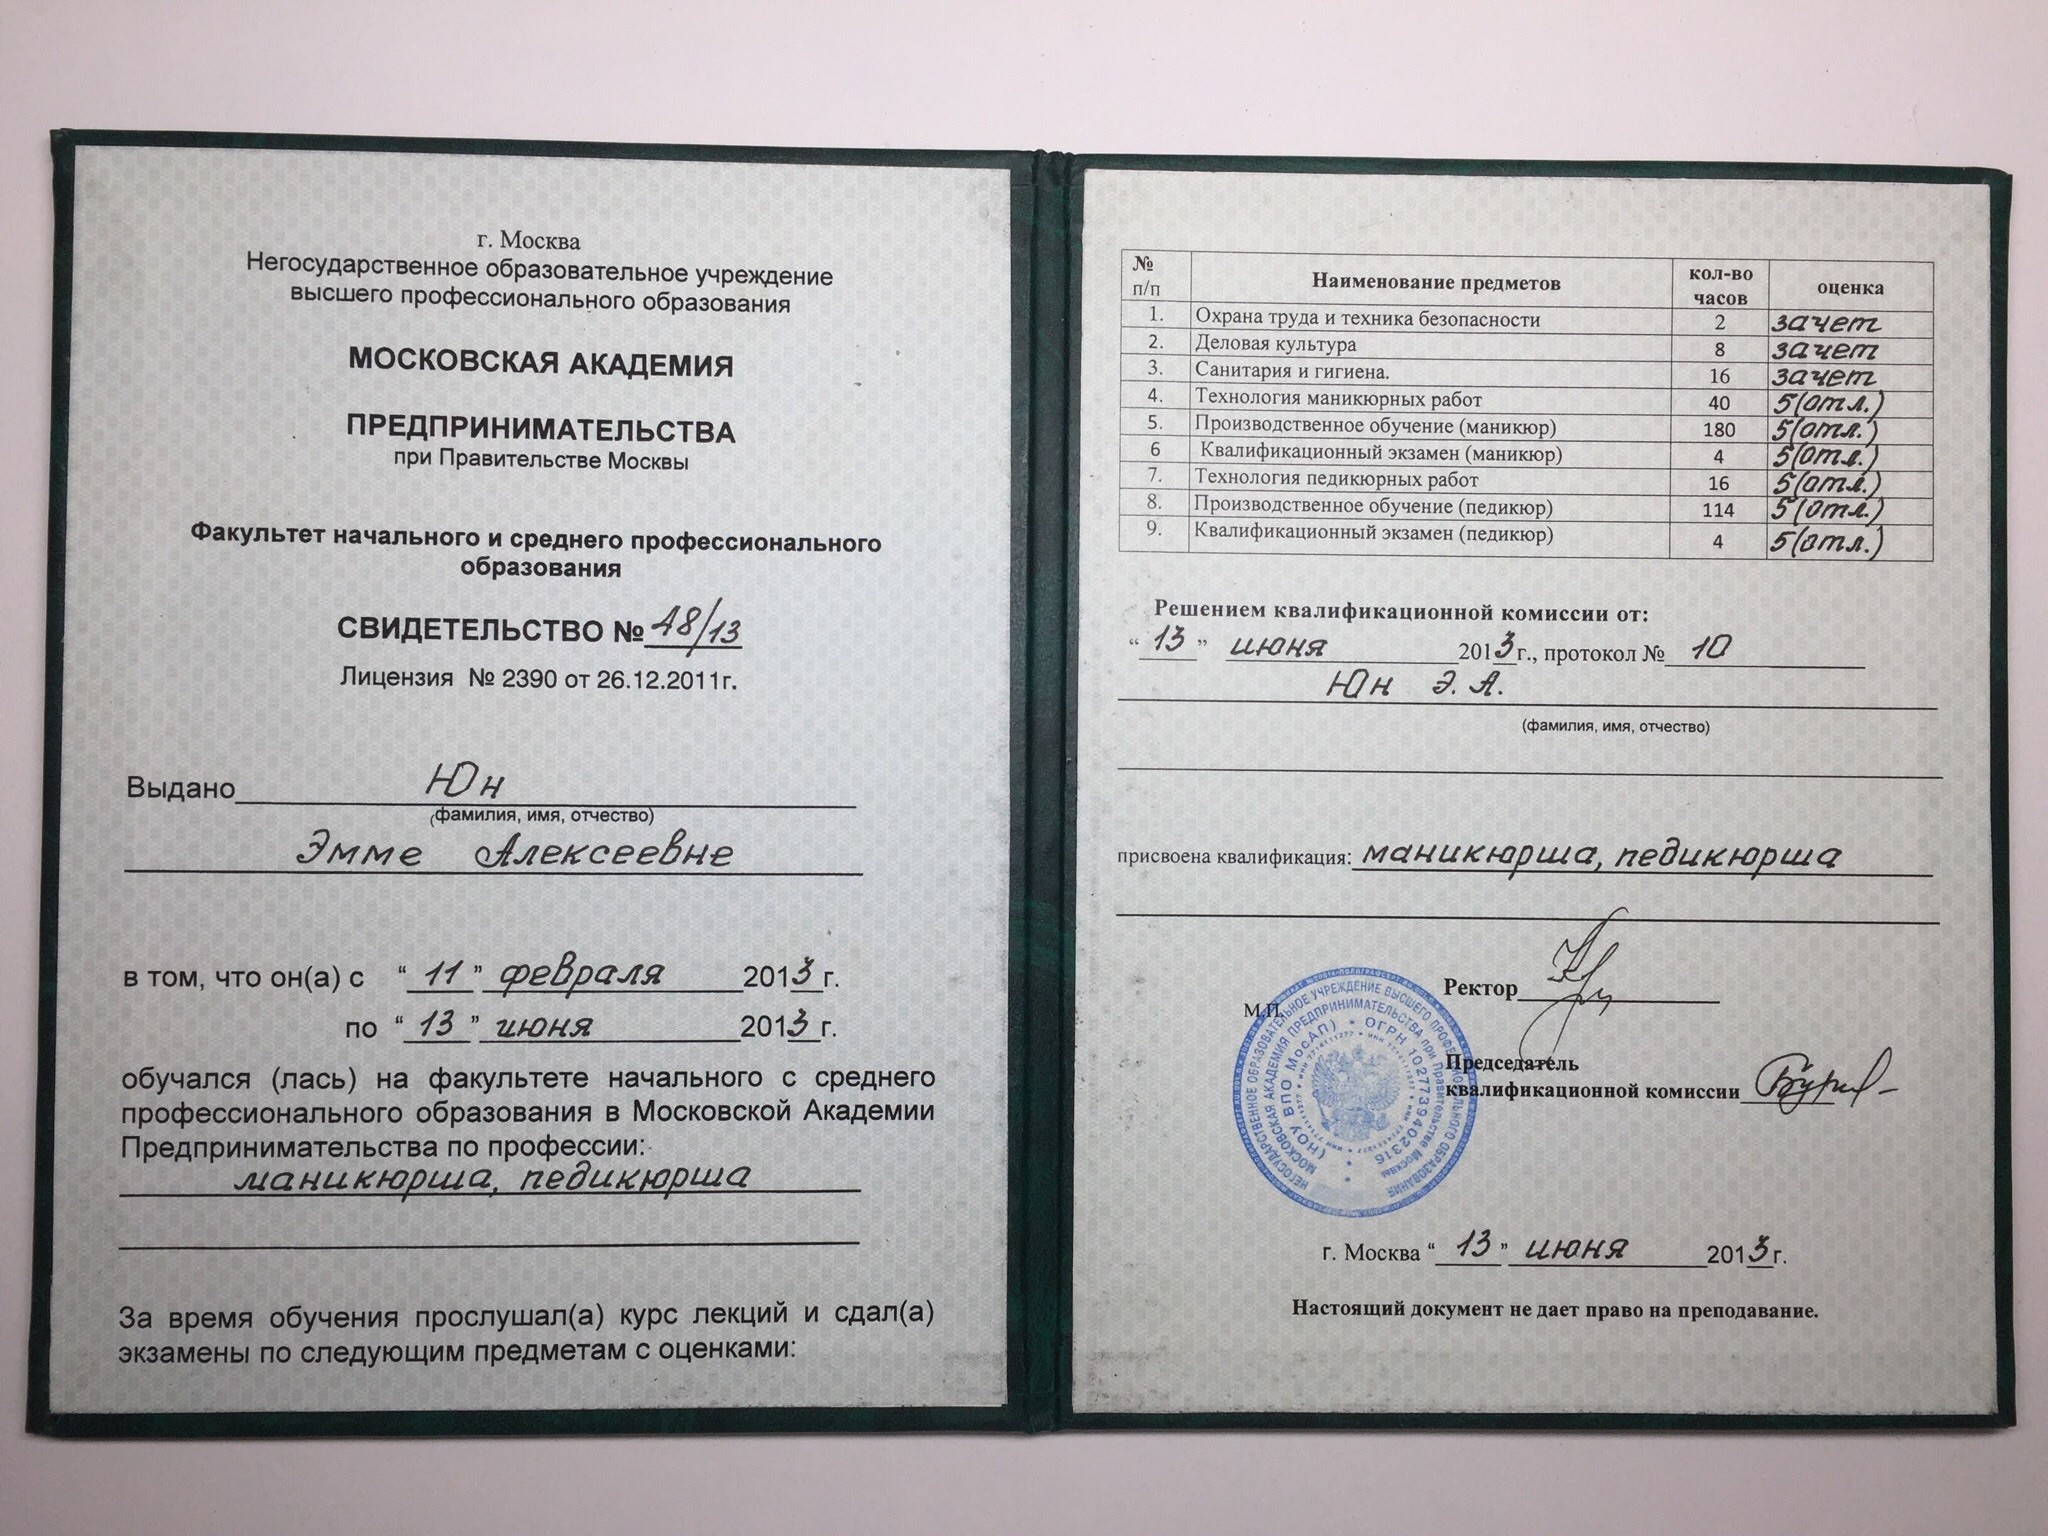 г. Москва
Негосударственное образовательное учреждение
высшего профессионального образования
МОСКОВСКАЯ АКАДЕМИЯ
ПРЕДПРИНИМАТЕЛЬСТВА
при Правительстве Москвы
Факультет начального и среднего профессионального
образования
СВИДЕТЕЛЬСТВО № 48/13
Лицензия № 2390 от 26.12.2011г.
Выдано Юн
(фамилия, имя, отчество)
Эмме Алексеевне
в том, что он(а) с “ 11 ” февраля 2013 г.
по “ 13 ” июня 2013 г.
обучался (лась) на факультете начального с среднего
профессионального образования в Московской Академии
Предпринимательства по профессии:
маникюрша, педикюрша
За время обучения прослушал(а) курс лекций и сдал(а)
экзамены по следующим предметам с оценками:
№ п/п Наименование предметов кол-во часов оценка
1. Охрана труда и техника безопасности 2 зачет
2. Деловая культура 8 зачет
3. Санитария и гигиена. 16 зачет
4. Технология маникюрных работ 40 5(отл.)
5. Производственное обучение (маникюр) 180 5(отл.)
6 Квалификационный экзамен (маникюр) 4 5(отл.)
7. Технология педикюрных работ 16 5(отл.)
8. Производственное обучение (педикюр) 114 5(отл.)
9. Квалификационный экзамен (педикюр) 4 5(отл.)
Решением квалификационной комиссии от:
“ 13 ” июня 2013 г., протокол № 10
Юн Э. А.
(фамилия, имя, отчество)
присвоена квалификация: маникюрша, педикюрша
Ректор
М.П.
Председатель
квалификационной комиссии
НЕГОСУДАРСТВЕННОЕ ОБРАЗОВАТЕЛЬНОЕ УЧРЕЖДЕНИЕ ВЫСШЕГО ПРОФЕССИОНАЛЬНОГО ОБРАЗОВАНИЯ
МОСКОВСКАЯ АКАДЕМИЯ ПРЕДПРИНИМАТЕЛЬСТВА при Правительстве Москвы
(НОУ ВПО МосАП) • ОГРН 1027739402316
г. Москва “ 13 ” июня 2013 г.
Настоящий документ не дает право на преподавание.